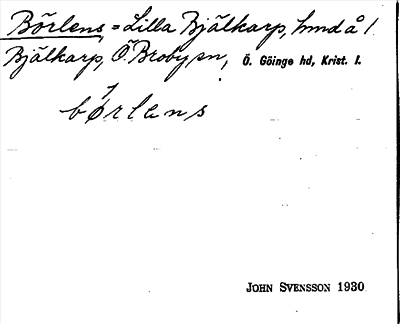 Börlens, = Lilla Bjälkarp, hmd å 1
Bjälkarp, Ö. Broby sn, Ö. Göinge hd, Krist. l.
bö́rlens
JOHN SVENSSON 1930